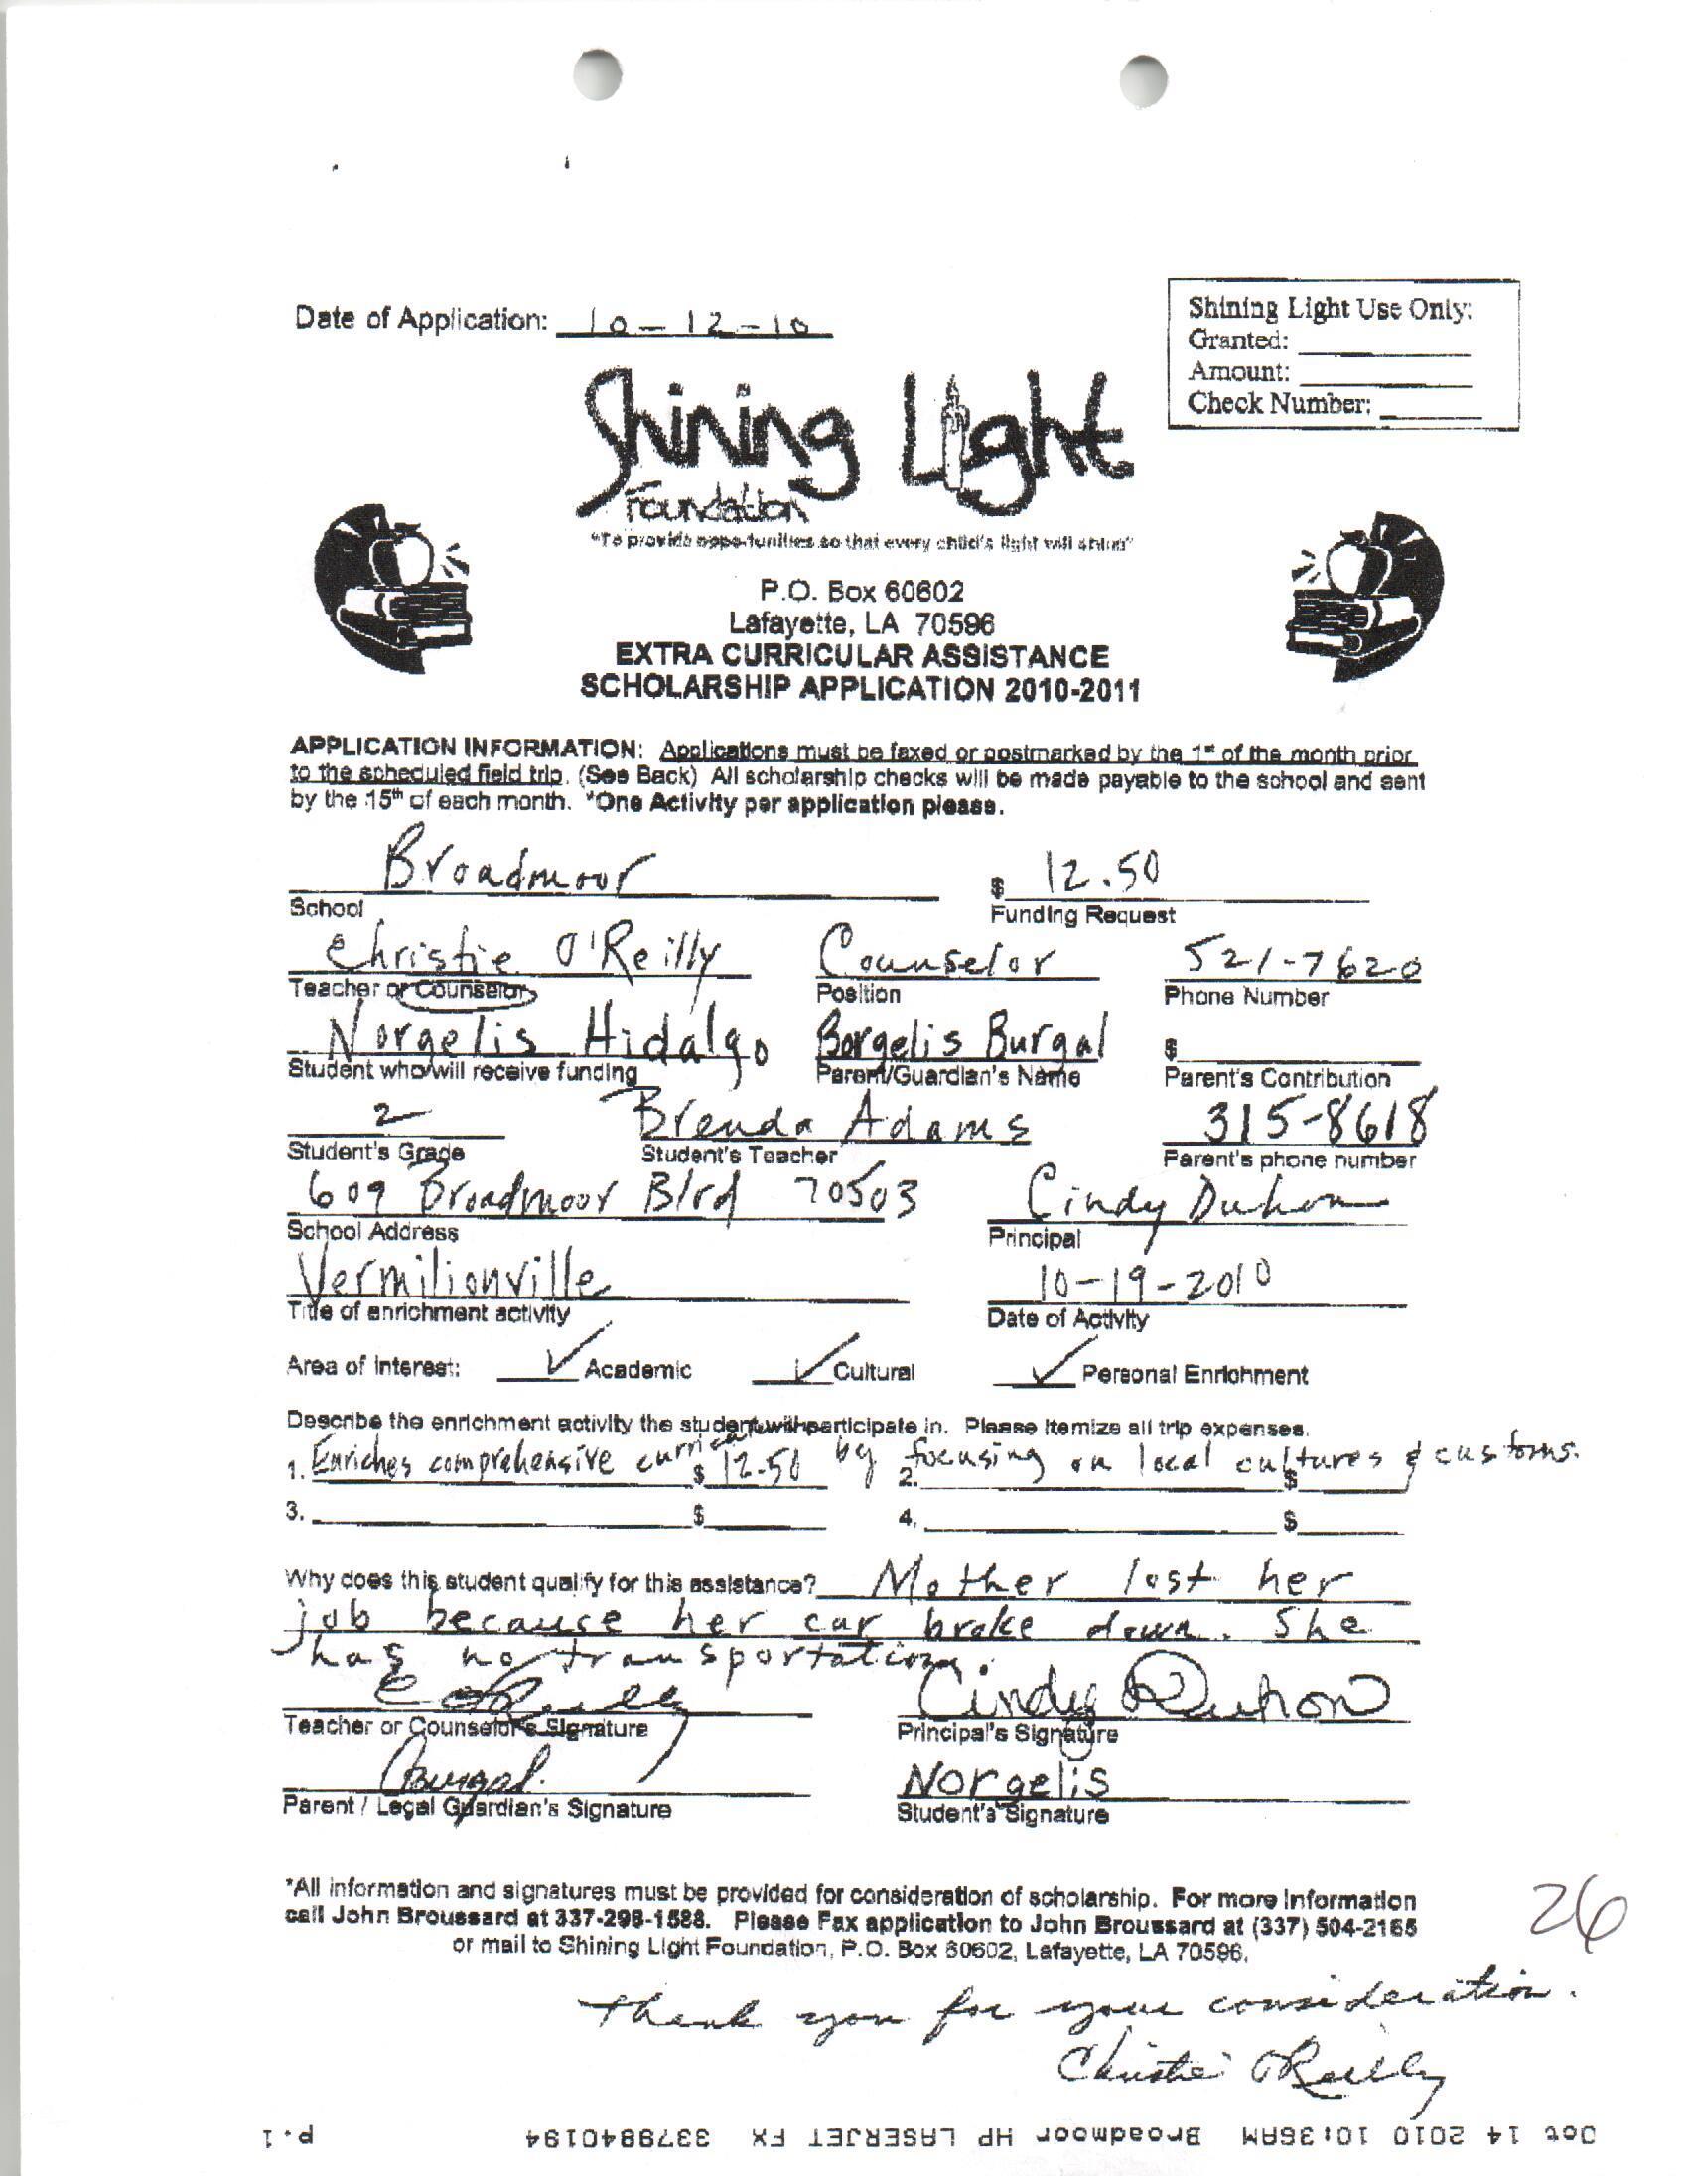 Date of Application: 10-12-10
Shining Light Use Only:
Granted:
Amount:
Check Number:
Shining Light
Foundation
"To provide opportunities so that every child's light will shine"
P.O. Box 60602
Lafayette, LA 70596
EXTRA CURRICULAR ASSISTANCE
SCHOLARSHIP APPLICATION 2010-2011
APPLICATION INFORMATION: Applications must be faxed or postmarked by the 1st of the month prior
to the scheduled field trip. (See Back) All scholarship checks will be made payable to the school and sent
by the 15th of each month. *One Activity per application please.
Broadmoor $ 12.50
School Funding Request
Christie O'Reilly Counselor 521-7620
Teacher or Counselor Position Phone Number
Norgelis Hidalgo Borgelis Burgal $
Student who will receive funding Parent/Guardian's Name Parent's Contribution
2 Brenda Adams 315-8618
Student's Grade Student's Teacher Parent's phone number
609 Broadmoor Blvd 70503 Cindy Duhon
School Address Principal
Vermilionville 10-19-2010
Title of enrichment activity Date of Activity
Area of Interest: ✓ Academic ✓ Cultural ✓ Personal Enrichment
Describe the enrichment activity the student will participate in. Please itemize all trip expenses.
1. Enriches comprehensive $ 12.50 by 2. focusing on local cultures $ & customs.
3. $ 4. $
Why does this student qualify for this assistance? Mother lost her
job because her car broke down. She
has no transportation.
Cindy Duhon
Teacher or Counselor's Signature Principal's Signature
Burgal. Norgelis
Parent / Legal Guardian's Signature Student's Signature
*All information and signatures must be provided for consideration of scholarship. For more information
call John Broussard at 337-298-1588. Please Fax application to John Broussard at (337) 504-2165
or mail to Shining Light Foundation, P.O. Box 60602, Lafayette, LA 70596.
26
Thank you for your consideration.
Christie O'Reilly
Oct 14 2010 10:36AM Broadmoor HP LASERJET FX 3379840194 p.1